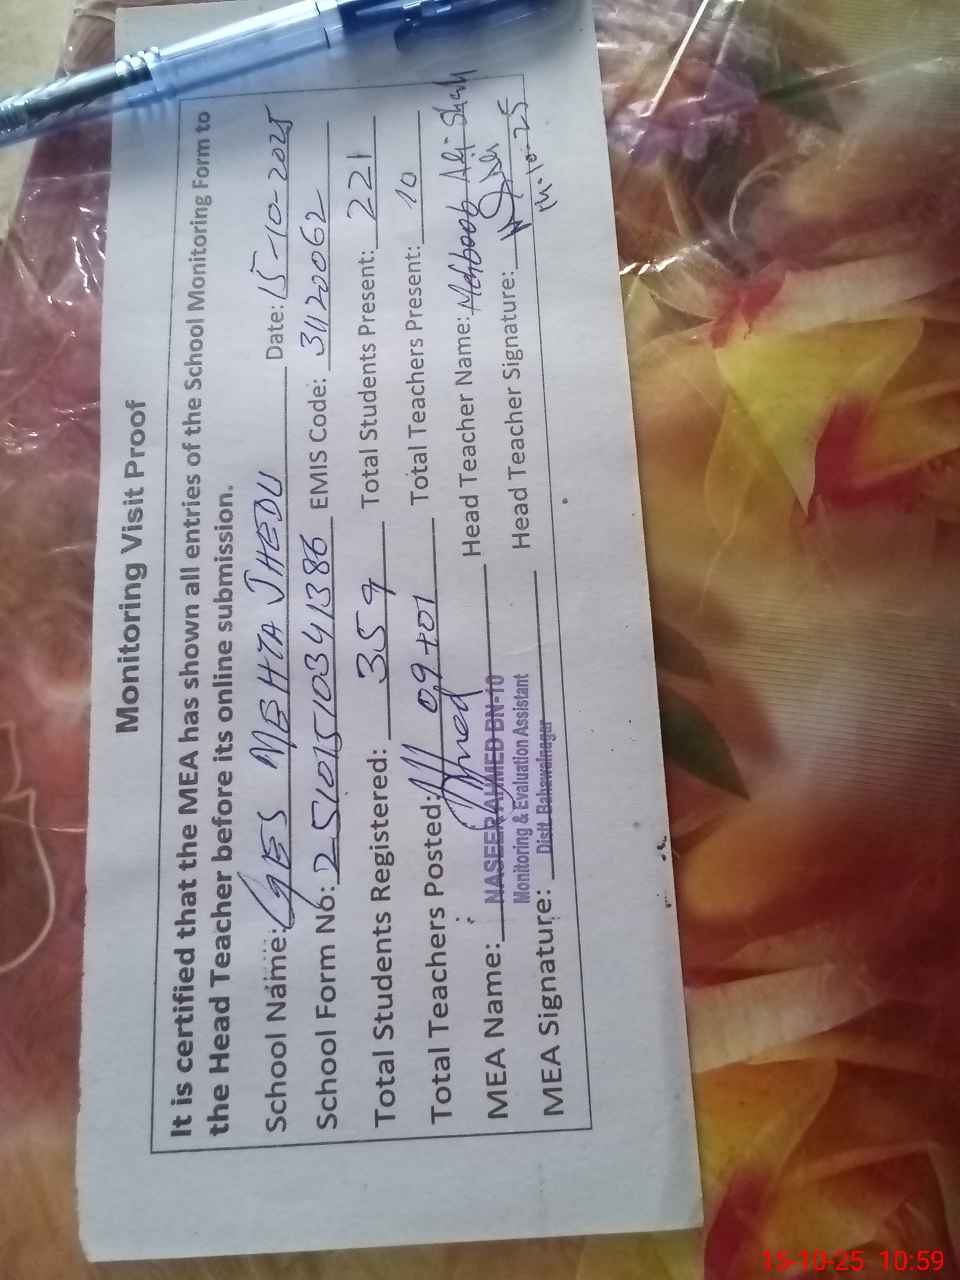 Monitoring Visit Proof
It is certified that the MEA has shown all entries of the School Monitoring Form to
the Head Teacher before its online submission.
School Name: GES MEHTA JHEDU Date: 15-10-2025
School Form No: 25101510341386 EMIS Code: 31120062
Total Students Registered: 359 Total Students Present: 221
Total Teachers Posted: 09+01 Total Teachers Present: 10
MEA Name: NASEER AHMED BN-10 Head Teacher Name: Mahboob Ali Shah
Monitoring & Evaluation Assistant
MEA Signature: Distt. Bahawalnagar Head Teacher Signature:
15-10-25 10:59